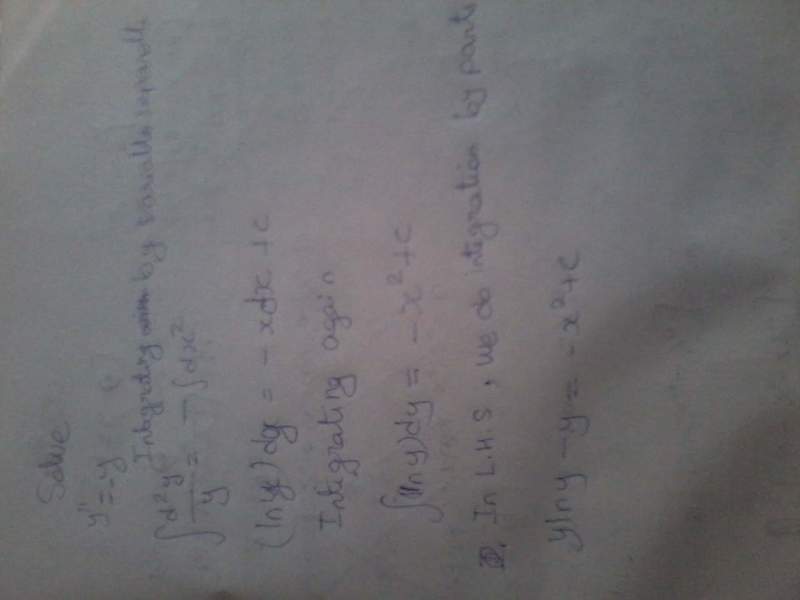 Solve
y'' = -y
Integrating by variable separable
∫ d²y/y = - ∫ dx²
(ln y) dy = - x dx + c
Integrating again
∫ (ln y) dy = - x² + c
In L.H.S, we do integration by parts
y ln y - y = - x² + c